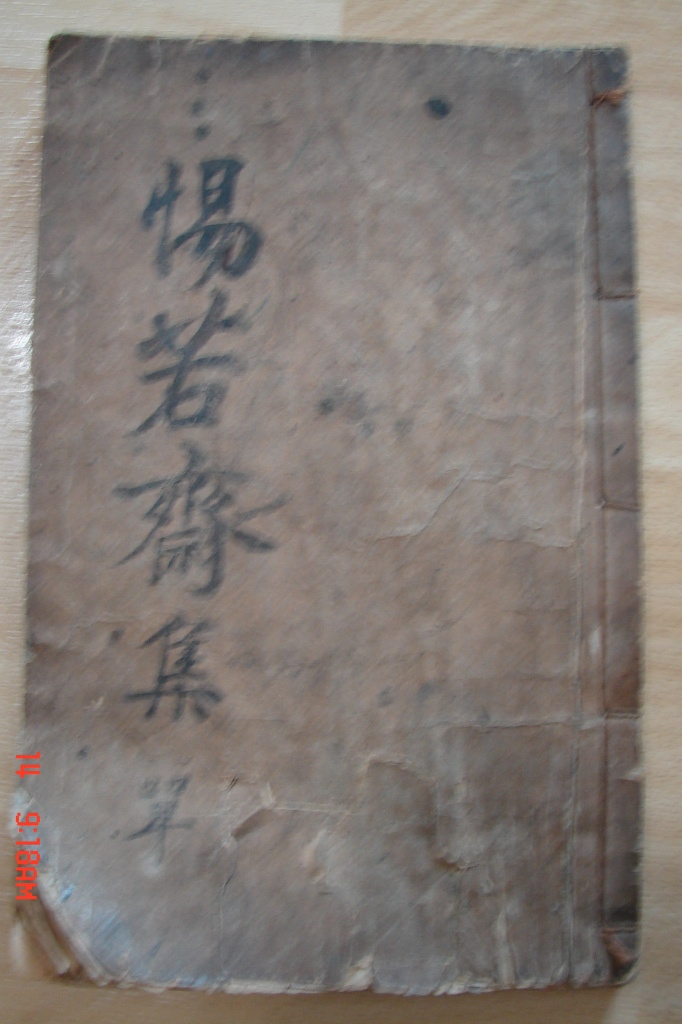 惕若齋集
單
14 9:18AM